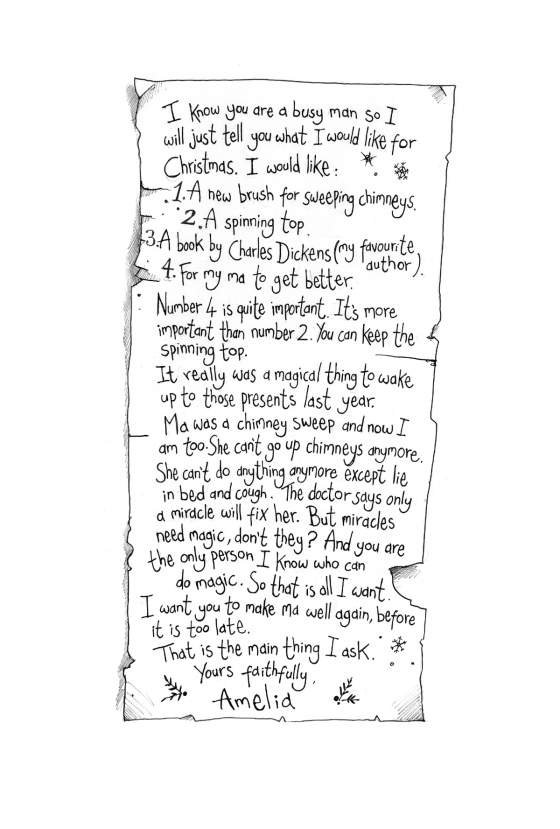 I know you are a busy man so I
will just tell you what I would like for
Christmas. I would like:
1. A new brush for sweeping chimneys.
2. A spinning top.
3. A book by Charles Dickens (my favourite
author).
4. For my ma to get better.
Number 4 is quite important. It's more
important than number 2. You can keep the
spinning top.
It really was a magical thing to wake
up to those presents last year.
Ma was a chimney sweep and now I
am too. She can't go up chimneys anymore.
She can't do anything anymore except lie
in bed and cough. The doctor says only
a miracle will fix her. But miracles
need magic, don't they? And you are
the only person I know who can
do magic. So that is all I want.
I want you to make ma well again, before
it is too late.
That is the main thing I ask.
Yours faithfully,
Amelia